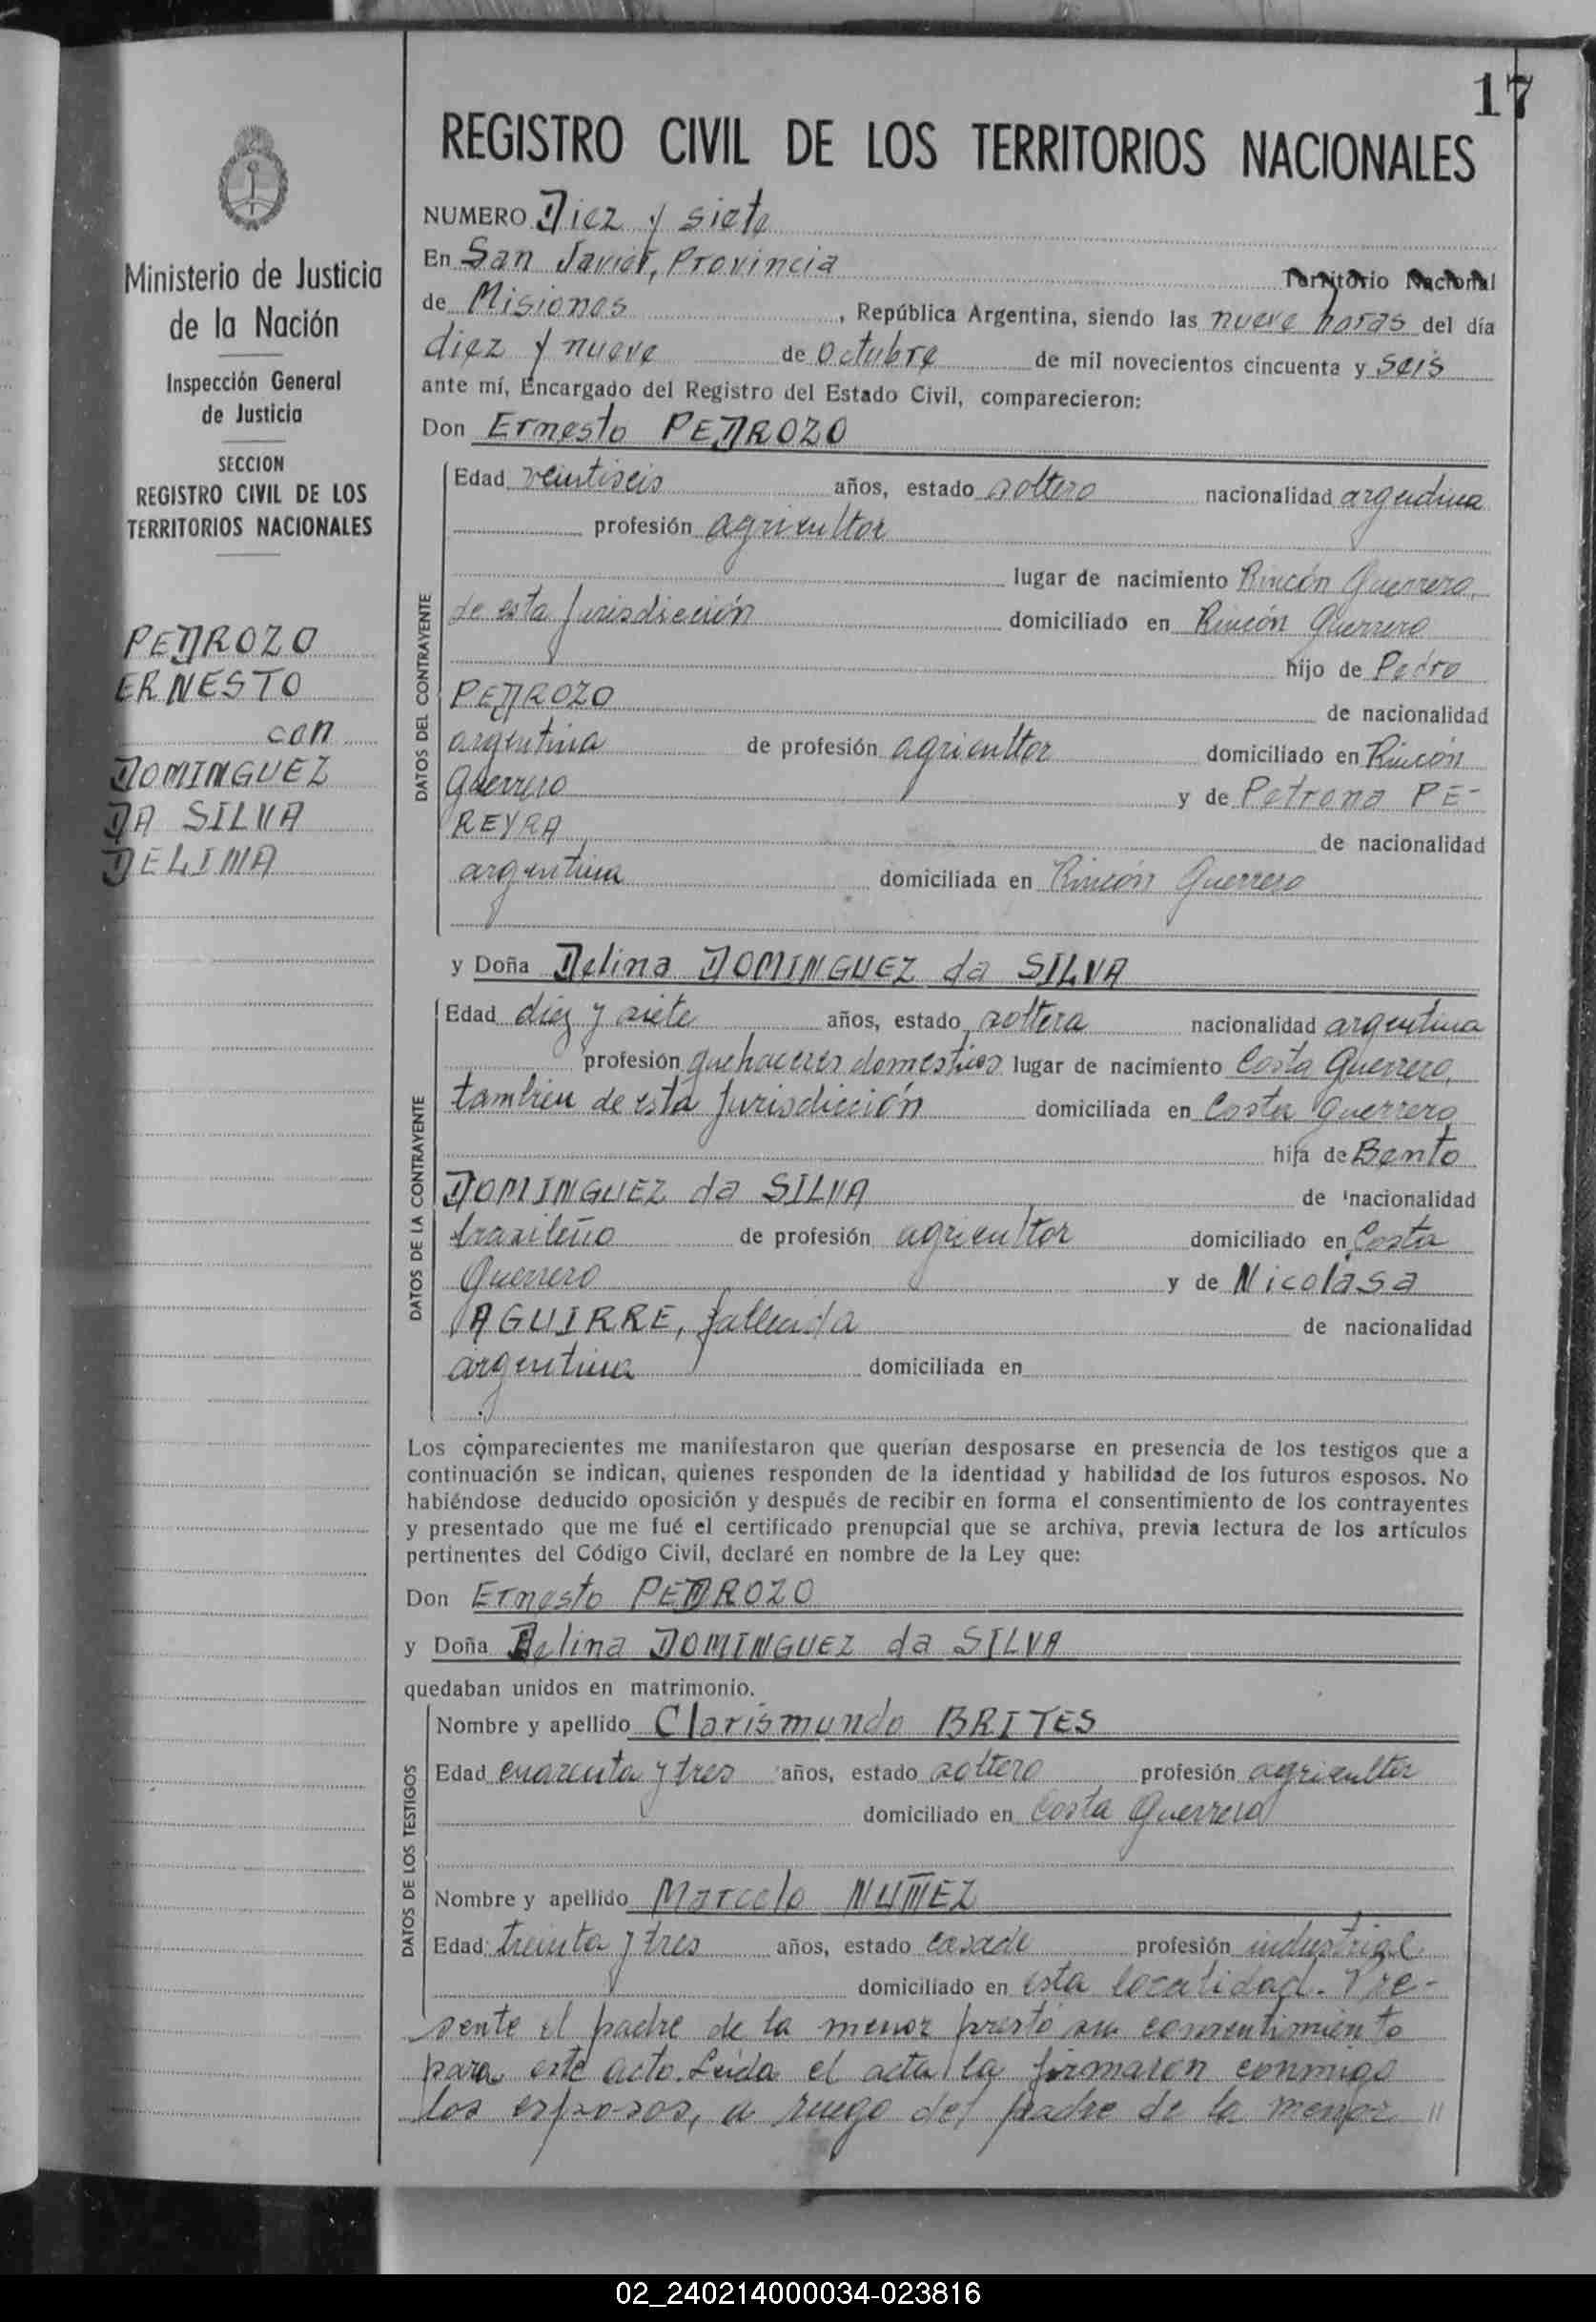 17
REGISTRO CIVIL DE LOS TERRITORIOS NACIONALES
Ministerio de Justicia
de la Nación
Inspección General
de Justicia
SECCION
REGISTRO CIVIL DE LOS
TERRITORIOS NACIONALES
PEDROZO
ERNESTO
con
DOMINGUEZ
DA SILVA
DELINA
NUMERO Diez y siete
En San Javier, Provincia Territorio Nacional
de Misiones, República Argentina, siendo las nueve horas del día
diez y nueve de octubre de mil novecientos cincuenta y seis
ante mí, Encargado del Registro del Estado Civil, comparecieron:
Don Ernesto PEDROZO
DATOS DEL CONTRAYENTE
Edad veintiseis años, estado soltero nacionalidad argentina
profesión agricultor
lugar de nacimiento Rincón Guerrero,
de esta Jurisdicción domiciliado en Rincón Guerrero
hijo de Pedro
PEDROZO de nacionalidad
argentina de profesión agricultor domiciliado en Rincón
Guerrero y de Petrona PE-
REYRA de nacionalidad
argentina domiciliada en Rincón Guerrero
y Doña Delina DOMINGUEZ da SILVA
DATOS DE LA CONTRAYENTE
Edad diez y siete años, estado soltera nacionalidad argentina
profesión quehaceres domesticos lugar de nacimiento Costa Guerrero,
tambien de esta Jurisdicción domiciliada en Costa Guerrero
hija de Bento
DOMINGUEZ da SILVA de nacionalidad
brasileño de profesión agricultor domiciliado en Costa
Guerrero y de Nicolasa
AGUIRRE, fallecida de nacionalidad
argentina domiciliada en
Los comparecientes me manifestaron que querían desposarse en presencia de los testigos que a
continuación se indican, quienes responden de la identidad y habilidad de los futuros esposos. No
habiéndose deducido oposición y después de recibir en forma el consentimiento de los contrayentes
y presentado que me fué el certificado prenupcial que se archiva, previa lectura de los artículos
pertinentes del Código Civil, declaré en nombre de la Ley que:
Don Ernesto PEDROZO
y Doña Delina DOMINGUEZ da SILVA
quedaban unidos en matrimonio.
DATOS DE LOS TESTIGOS
Nombre y apellido Clarismundo BRITES
Edad cuarenta y tres años, estado soltero profesión agricultor
domiciliado en Costa Guerrero
Nombre y apellido Marcelo NUÑEZ
Edad treinta y tres años, estado casado profesión industrial
domiciliado en esta localidad. Pre-
sente el padre de la menor prestó su consentimiento
para este acto. Leída el acta la firmaron conmigo
los esposos, a ruego del padre de la menor //
02_240214000034-023816